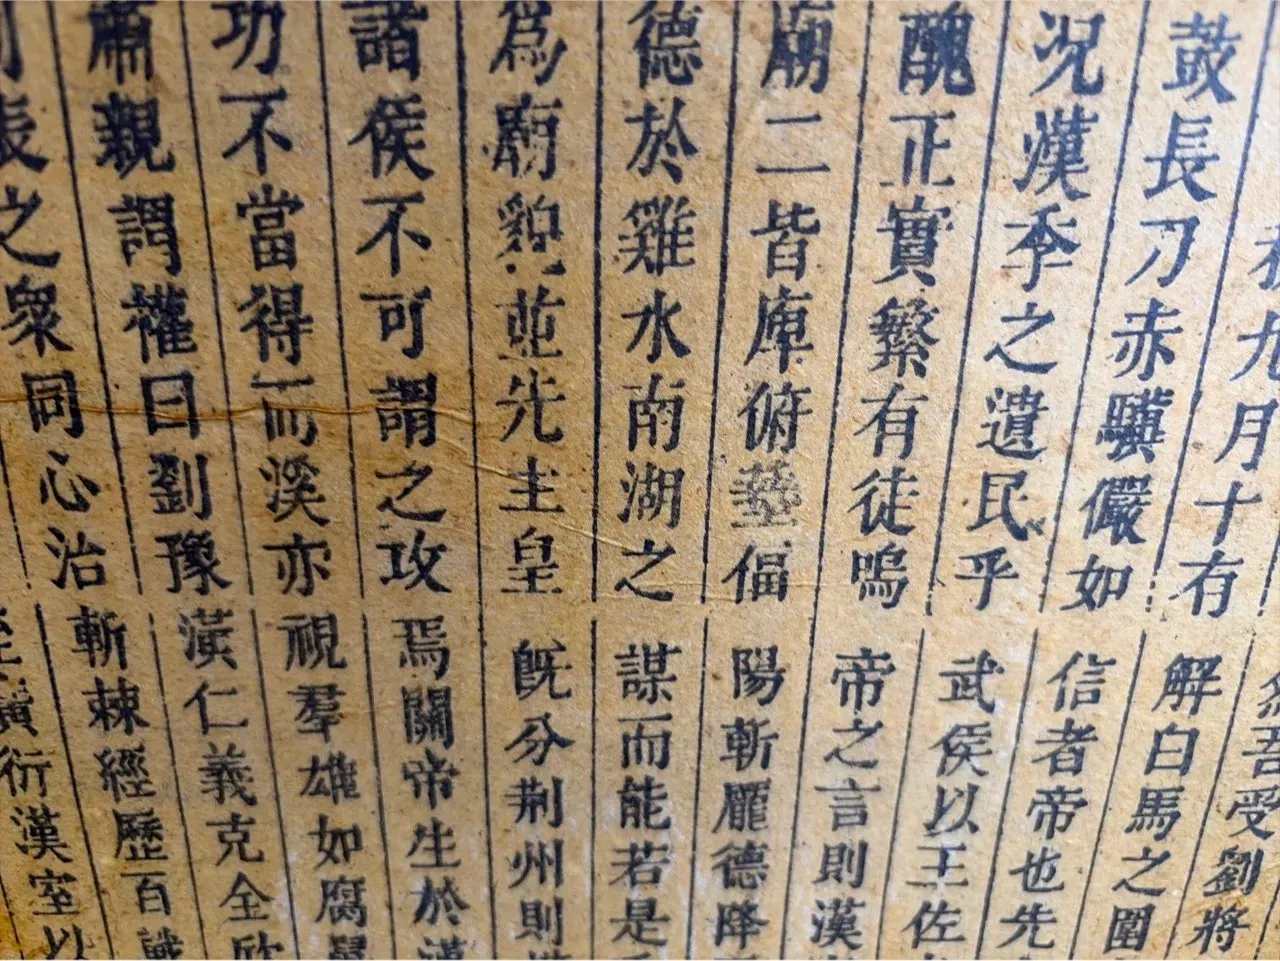 九月十有
鼓長刀赤驥儼如
况漢季之遺民乎
醜正實繁有徒嗚
廟二皆庳俯偪
德於雞水南湖之
為廟貌並先主皇
諸侯不可謂之攻
功不當得而溪亦
肅親謂權曰劉豫
表之衆同心治
吾受劉將
解白馬之圍
信者帝也先
武侯以王佐
帝之言則漢
陽斬龎德降
謀而能若是
既分荆州則
焉關帝生於漢
視羣雄如腐鼠
漢仁義克全欣
斬棘經歷百戰
衍漢室以